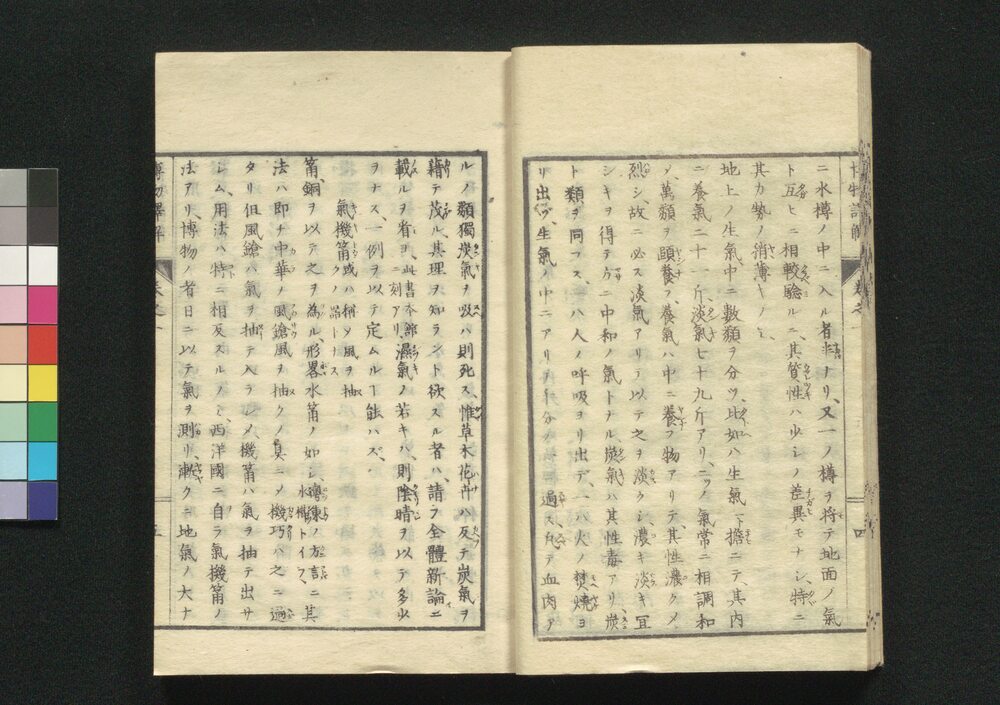 ニ水樽ノ中ニ入ル者ナリ、又一ノ樽ヲ將テ地面ノ氣
ト互ヒニ相較驗ルニ、其質性ハ少シノ差異モナシ、特ニ
其力勢ノ消薄キノミ
地上ノ生氣中ニ數類ヲ分ツ、比如ハ生氣百擔ニテ、其内
ニ養氣二十一斤淡氣七十九斤アリ、二ツノ氣常ニ相調和
ノ、萬類ヲ頤養フ、養氣ハ中ニ養フ物アリテ、其性濃クメ
烈シ、故ニ必ス淡氣アリテ以テ之ヲ淡クシ、濃キ淡キ宜
シキヲ得テ、中和ノ氣トナル、炭氣ハ其性毒アリ、炭
ト類ヲ同フス、一ハ人ノ呼吸ヨリ出デ、一ハ火ノ焚燒ヨ
リ出ヅ、生氣ノ中ニアリテ千分ノ一ニ過ス、凡テ血肉ア
ルノ類獨炭氣ヲ吸ハ則死ス、惟草木花卉ハ反テ炭氣ヲ
藉テ茂ル、其理ヲ知ラント欲スル者ハ、請フ全體新論ニ
載ルヲ省ヨ、此書本部ノ刻アリ濕氣ノ若キハ、則陰晴ヲ以テ多少
ヲナス、一例ヲ以テ定ムルヿ能ハズ、
氣機筩或ハ稱メ風ヲ抽クノ器トナス
筩、銅ヲ以テ之ヲ為ル、形畧水筩ノ如シ、水機トイフ、其
法ハ即チ中華ノ風鎗風ヲ抽クノ具ニメ機巧ハ之ニ過
タリ、但風鎗ハ氣ヲ抽テ入ラシメ、機筩ハ氣ヲ抽テ出サ
シム、用法ハ特ニ相反スルノミ、西洋國ニ自ラ氣機筩ノ
法アリ、博物ノ者日ニ以テ氣ヲ測リ、漸クニ地氣ノ大ナ
五